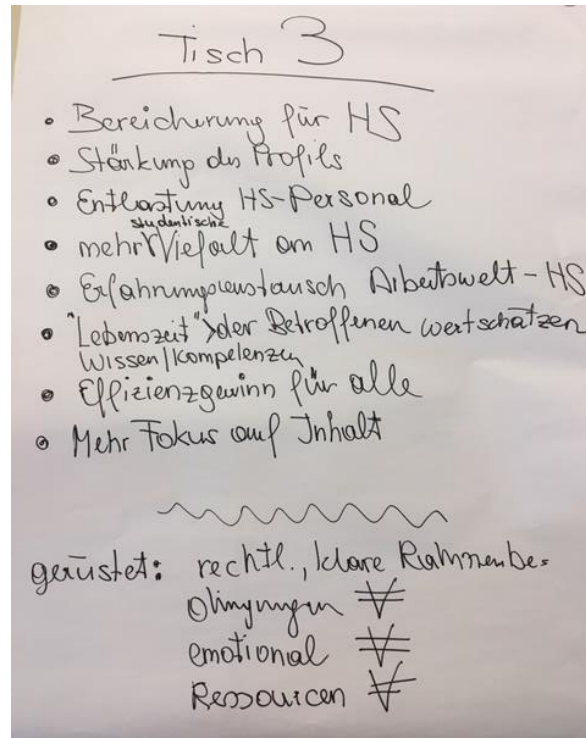 Tisch 3
• Bereicherung für HS
• Stärkung des Profils
• Entlastung HS-Personal
studentische
• mehr Vielfalt an HS
• Erfahrungsaustausch Arbeitswelt - HS
• "Lebenszeit" > der Betroffenen wertschätzen
Wissen/Kompetenzen
• Effizienzgewinn für alle
• Mehr Fokus auf Inhalt
gerüstet: rechtl., klare Rahmenbe-
dingungen
emotional
Ressourcen